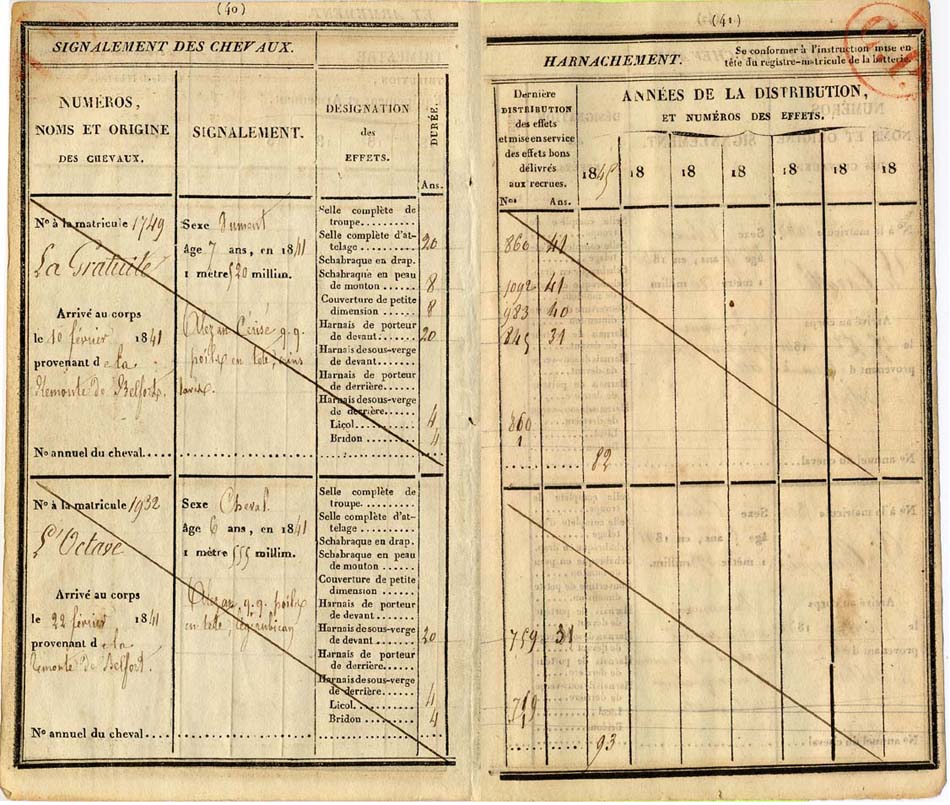 (40)
SIGNALEMENT DES CHEVAUX.
NUMÉROS,
NOMS ET ORIGINE
DES CHEVAUX.
SIGNALEMENT.
DÉSIGNATION
des
EFFETS.
DURÉE.
Ans.
No à la matricule 1749
La Gratuité
Arrivé au corps
le 10 février 1841
provenant de la
Remonte de Belfort.
No annuel du cheval....
Sexe Jument
âge 7 ans, en 1841
1 mètre 520 millim.
Alezan Cerise q.q.
poils en tête, crins
lavés.
Selle complète de
troupe.........
Selle complète d'at-
telage......... 20
Schabraque en drap.
Schabraque en peau
de mouton...... 8
Couverture de petite
dimension...... 8
Harnais de porteur
de devant...... 20
Harnais de sous-verge
de devant......
Harnais de porteur
de derrière.....
Harnais de sous-verge
de derrière.....
Licol......... 4
Bridon........ 4
No à la matricule 1932
L'Octave
Arrivé au corps
le 22 février 1841
provenant de la
remonte de Belfort.
No annuel du cheval....
Sexe Cheval
âge 6 ans, en 1841
1 mètre 555 millim.
Alezan, q.q. poils
en tête,
Selle complète de
troupe.........
Selle complète d'at-
telage.........
Schabraque en drap.
Schabraque en peau
de mouton......
Couverture de petite
dimension......
Harnais de porteur
de devant......
Harnais de sous-verge
de devant...... 20
Harnais de porteur
de derrière.....
Harnais de sous-verge
de derrière.....
Licol......... 4
Bridon........ 4
(41)
HARNACHEMENT.
Se conformer à l'instruction mise en
tête du registre-matricule de la batterie.
Dernière
DISTRIBUTION
des effets
et mise en service
des effets bons
délivrés
aux recrues.
Nos Ans.
ANNÉES DE LA DISTRIBUTION,
ET NUMÉROS DES EFFETS.
1845 18 18 18 18 18 18
860 41
1092 41
983 40
845 31
860
1
82
759 31
759
1
93